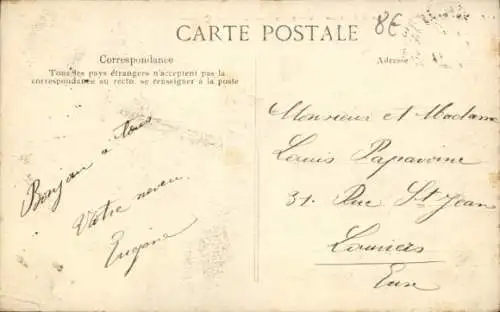 8€
CARTE POSTALE
Correspondance
Tous les pays étrangers n'acceptent pas la
correspondance au recto. se renseigner à la poste
Adresse
Bonjour a tous
Votre neveu
Eugène
Monsieur et Madame
Louis Papavoine
31. Rue St Jean
Louviers
Eure